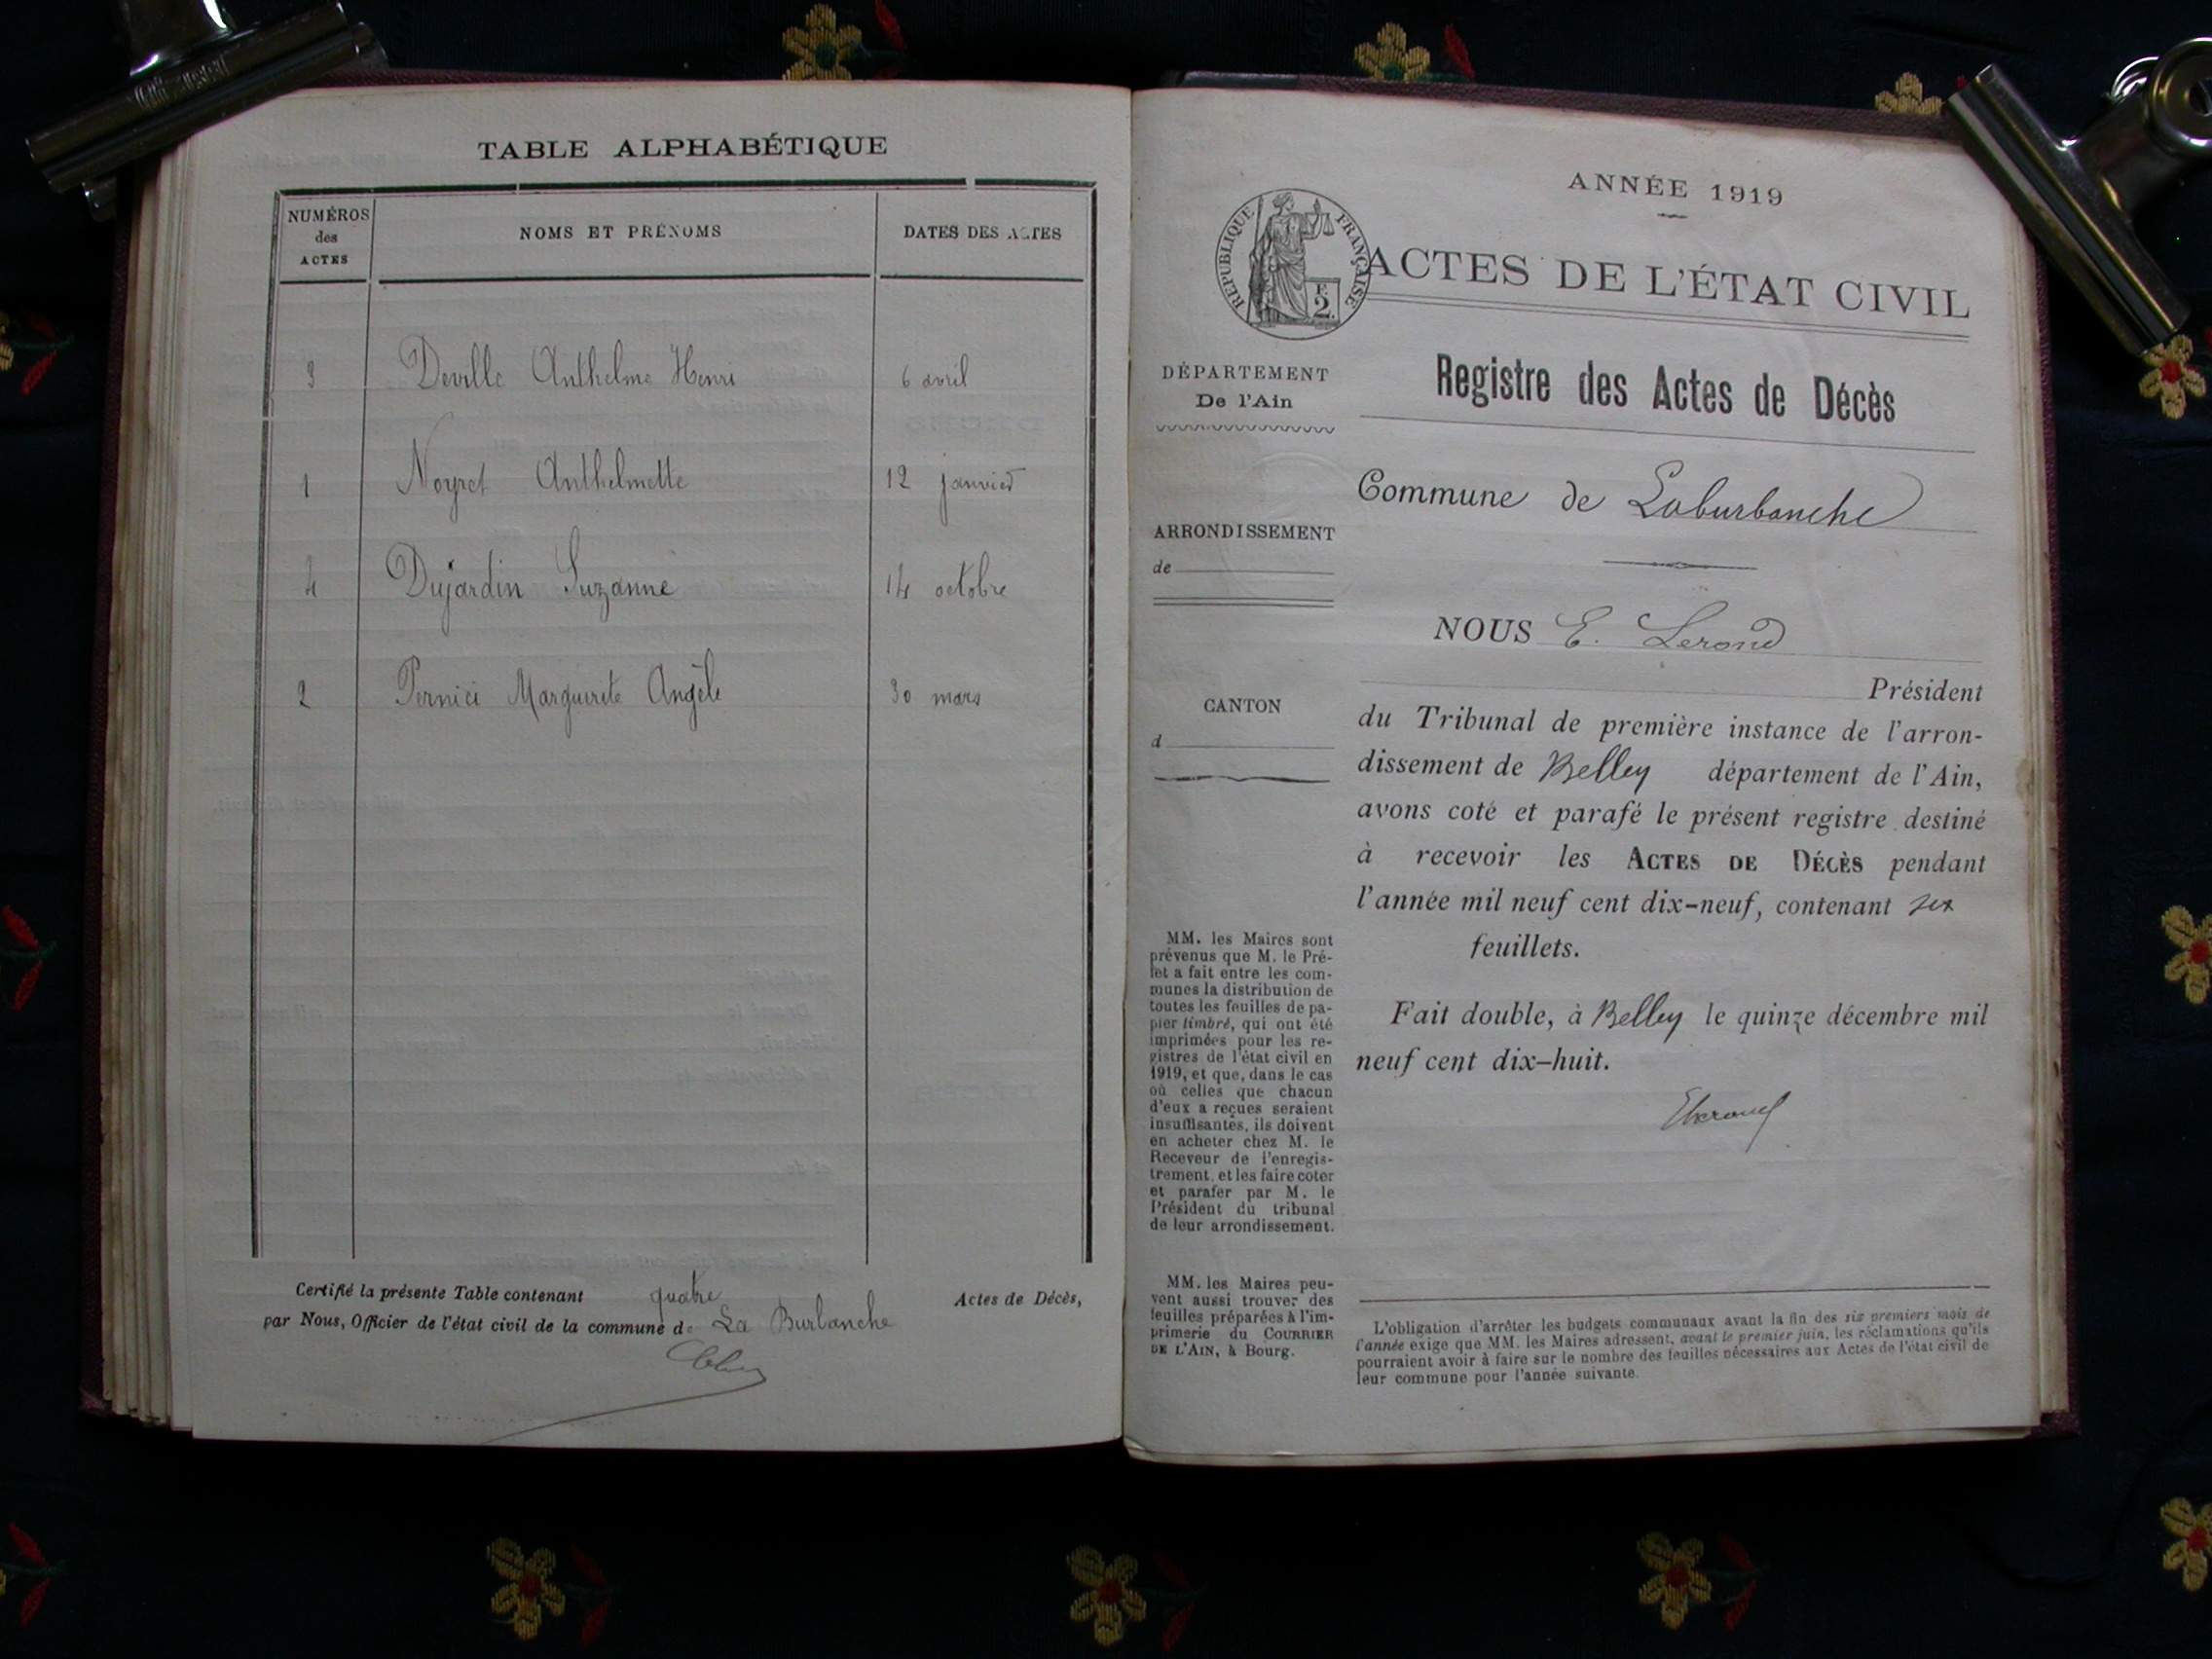 TABLE ALPHABÉTIQUE
NUMÉROS des ACTES
NOMS ET PRÉNOMS
DATES DES ACTES
3 Deville Anthelme Henri 6 avril
1 Noyret Anthelmette 12 janvier
4 Dujardin Suzanne 14 octobre
2 Pernici Marguerite Angèle 30 mars
Certifié la présente Table contenant quatre Actes de Décès,
par Nous, Officier de l'état civil de la commune de La Burbanche
ANNÉE 1919
RÉPUBLIQUE FRANÇAISE
F. 2.
ACTES DE L'ÉTAT CIVIL
DÉPARTEMENT
De l'Ain
ARRONDISSEMENT
de
CANTON
d
MM. les Maires sont
prévenus que M. le Pré-
fet a fait entre les com-
munes la distribution de
toutes les feuilles de pa-
pier timbré, qui ont été
imprimées pour les re-
gistres de l'état civil en
1919, et que, dans le cas
où celles que chacun
d'eux a reçues seraient
insuffisantes, ils doivent
en acheter chez M. le
Receveur de l'enregis-
trement, et les faire coter
et parafer par M. le
Président du tribunal
de leur arrondissement.
MM. les Maires peu-
vent aussi trouver des
feuilles préparées à l'im-
primerie du COURRIER
DE L'AIN, à Bourg.
Registre des Actes de Décès
Commune de Laburbanche
NOUS E. Lerond
Président
du Tribunal de première instance de l'arron-
dissement de Belley département de l'Ain,
avons coté et parafé le présent registre destiné
à recevoir les ACTES DE DÉCÈS pendant
l'année mil neuf cent dix-neuf, contenant six
feuillets.
Fait double, à Belley le quinze décembre mil
neuf cent dix-huit.
L'obligation d'arrêter les budgets communaux avant la fin des six premiers mois de
l'année exige que MM. les Maires adressent, avant le premier juin, les réclamations qu'ils
pourraient avoir à faire sur le nombre des feuilles nécessaires aux Actes de l'état civil de
leur commune pour l'année suivante.